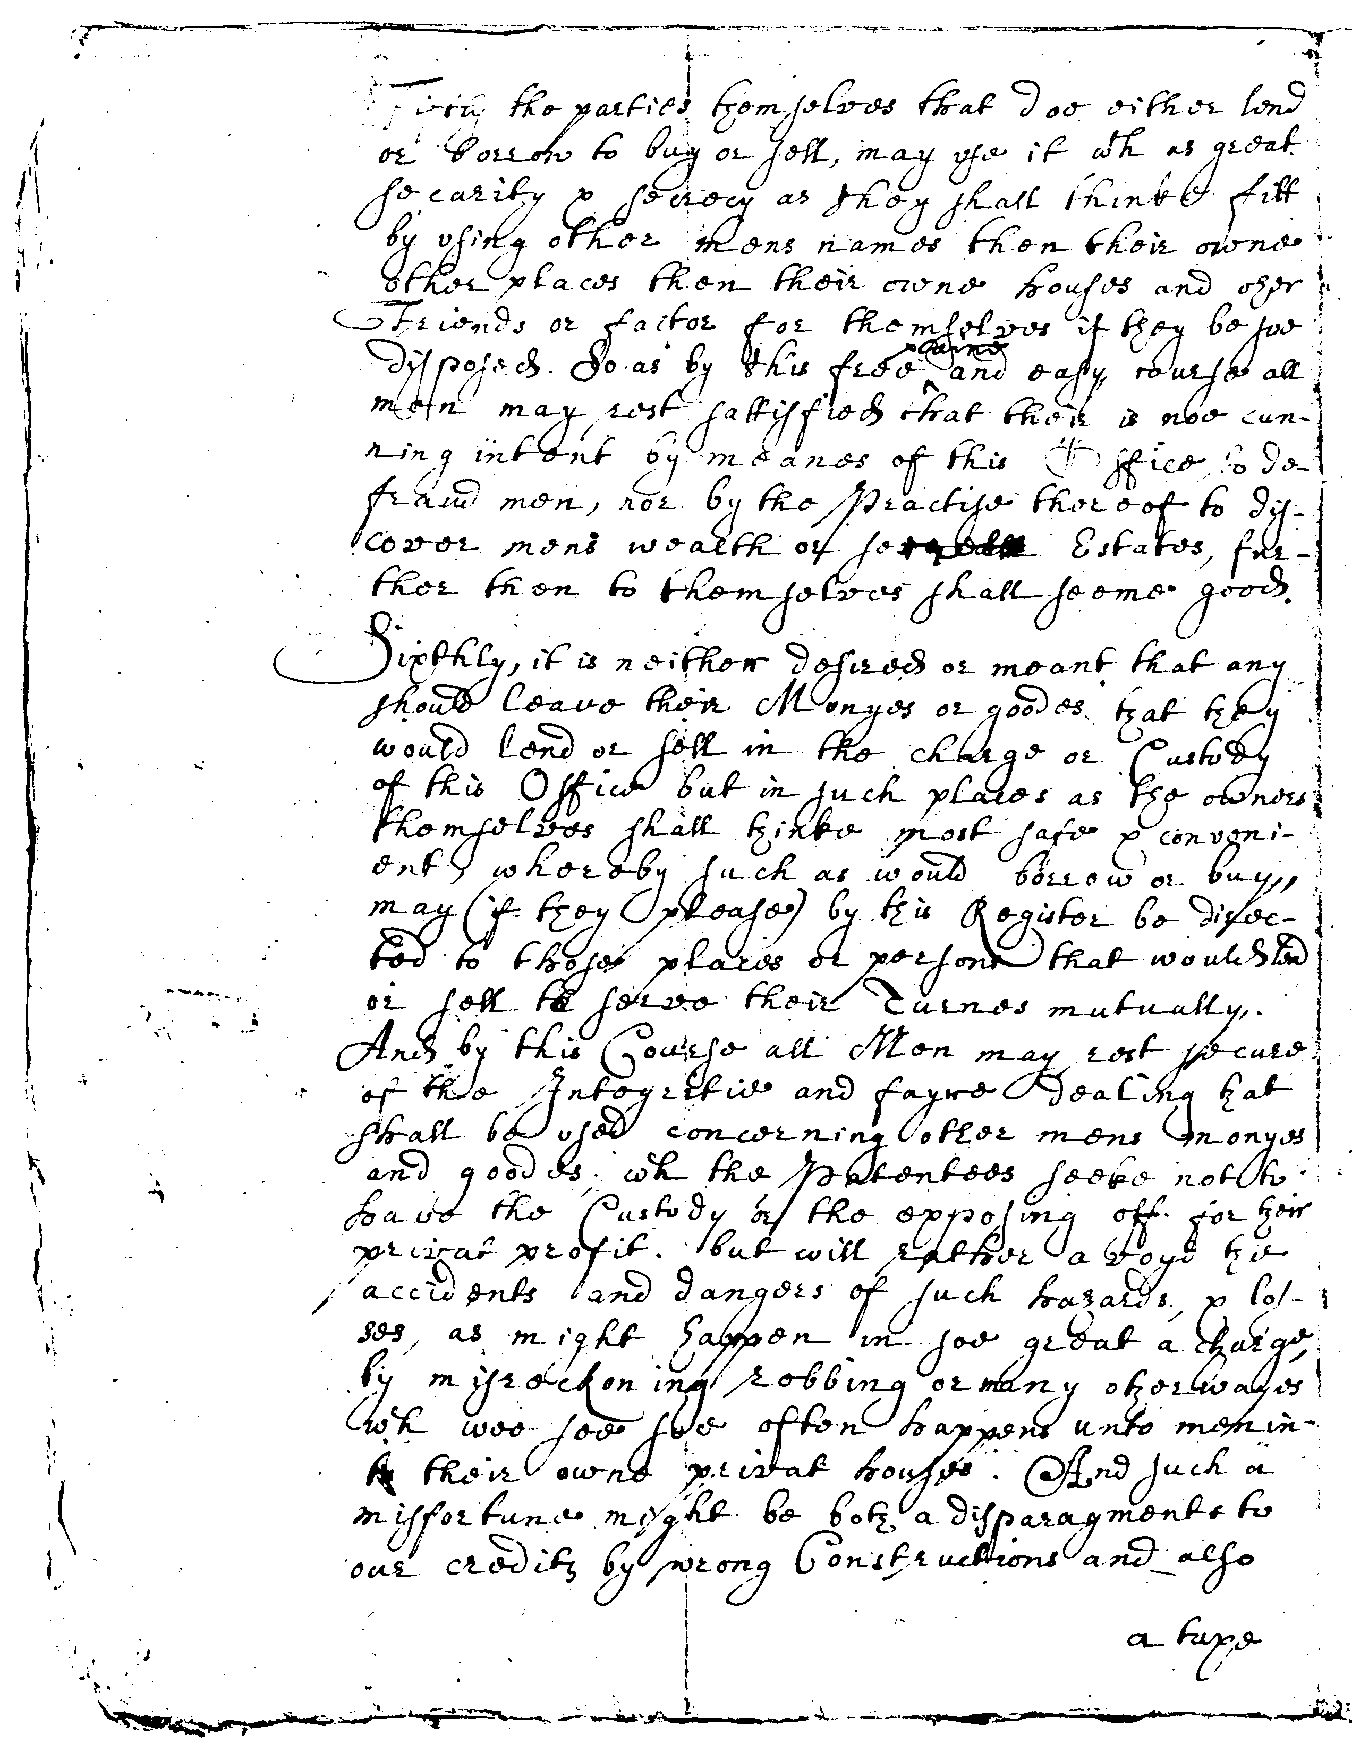 the parties themselves that doe either lend
or borrow to buy or sell, may vse it wth as great
security & secrecy as they shall thinke fitt
by vsing other mens names then their owne
other places then their owne houses and other
Friends or factor for themselves if they be soe
disposed. So as by this free plaine and easy course all
men may rest sattisfied that their is noe cun-
ning intent by meanes of this Office, to de-
fraud men, nor by the Practise thereof to dis-
cover mens wealth or Estates, fur-
ther then to themselves shall seeme good.
Sixthly, it is neither desired or meant that any
should leave their Monyes or goodes that they
would lend or sell in the charge or Custody
of this Office but in such places as the owners
themselves shall thinke most safe & conveni-
ent, whereby such as would borrow or buy,
may (if they please) by this Register be direc-
ted to those places or persons that would lend
or sell to serve their Turnes mutually.
And by this Course all Men may rest secure
of the Integritie and fayre dealing that
shall be vsed concerning other mens monyes
and goodes, wch the Patentees seeke not to
have the Custody or the exposing off. for their
privat profit. but will rather avoyd the
accidents and dangers of such hazards, & los-
ses, as might happen in soe great a charge,
by misreckoning robbing or many other wayes
wch wee see soe often happens unto men in
their owne privat houses. And such a
misfortune might be both a disparagment to
our credits by wrong Constructions and also
a taxe